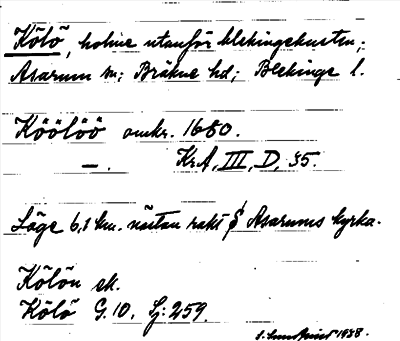 Kölö, holme utanför blekingekusten;
Asarum sn; Bräkne hd; Blekinge l.
Köölöö omkr. 1680.
—. KrA, III, D, 35.
Läge 6,1 km. nästan rakt S Asarums kyrka.
Kölön ek.
Kölö G. 10, Sj: 259.
1938.